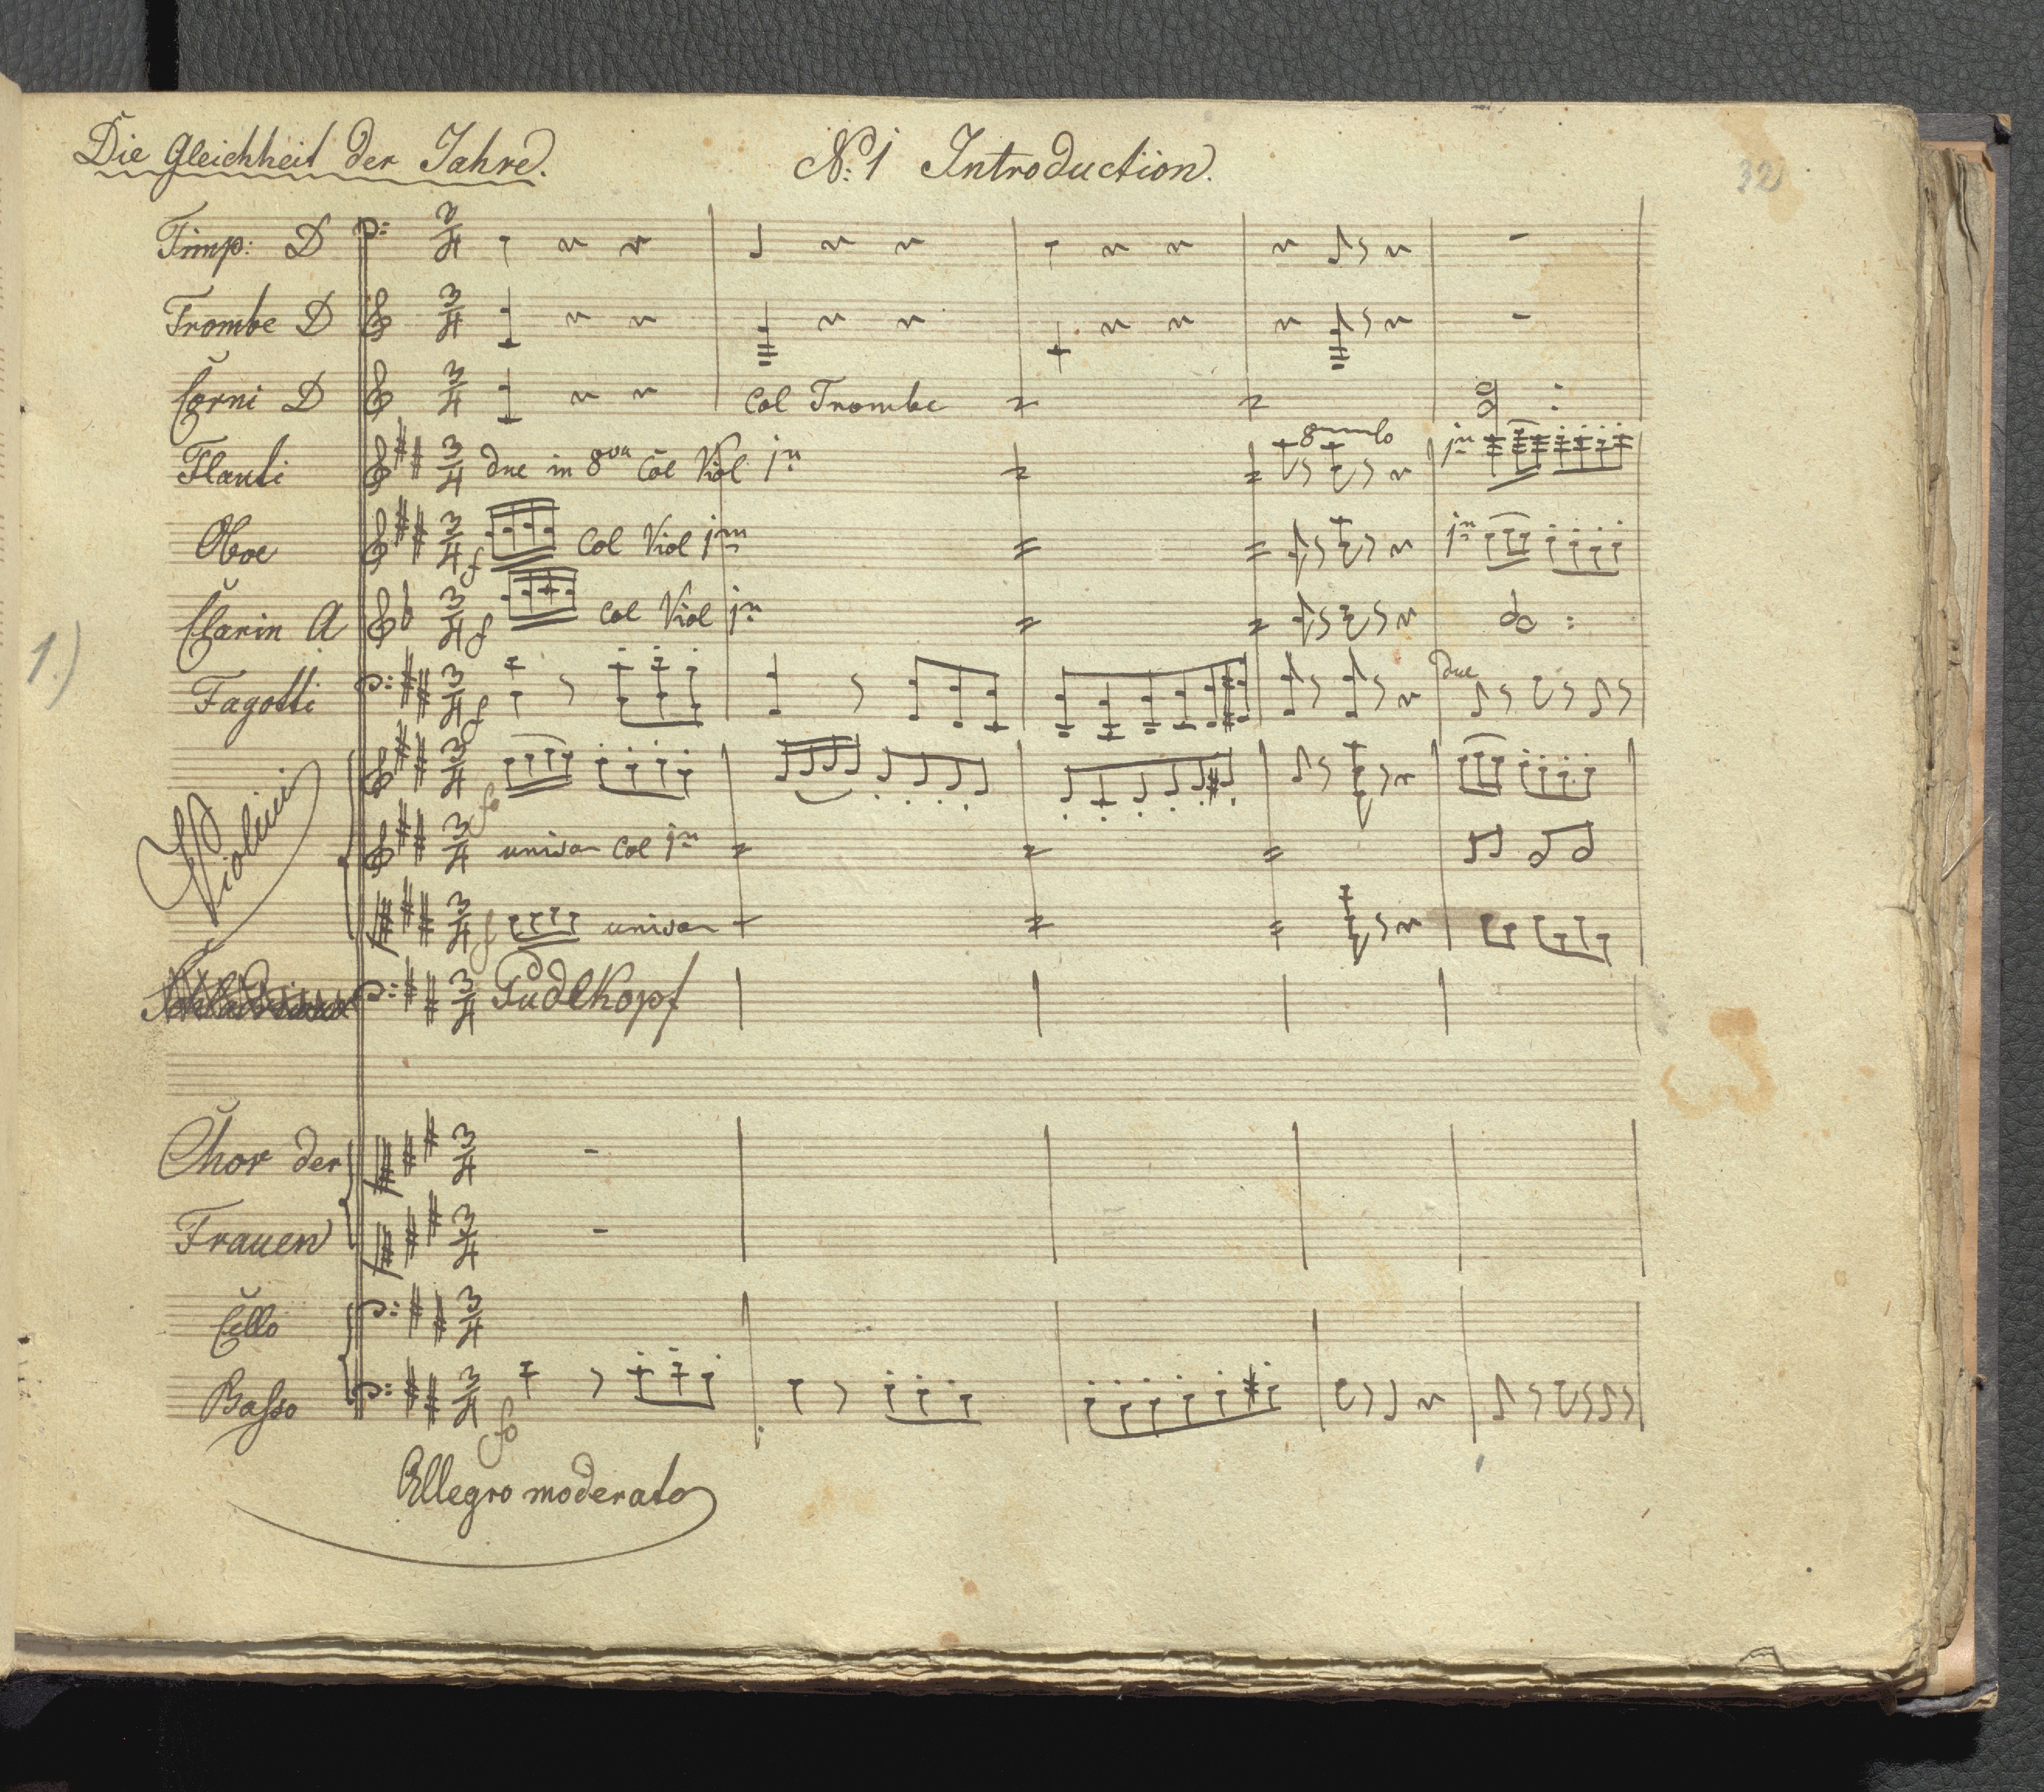 Die Gleichheit der Jahre. N.º 1 Introduction.
32
Timp: D
Trombe D
Corni D Col Trombe
Flauti due in 8va Col Viol 1mo 8 lo 1mo
Oboe f Col Viol 1mo 1mo
Clarin A f Col Viol 1mo
1.)
Fagotti f due
Violini fo
unison Col 1mo
f unison
Pudlkopf
Chor der
Frauen
Cello
Basso fo
Allegro moderato